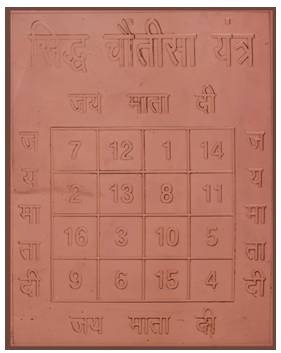 सिद्ध चौंतीसा यंत्र
जय माता दी
जय माता दी
7 12 1 14
2 13 8 11
16 3 10 5
9 6 15 4
जय माता दी
जय माता दी